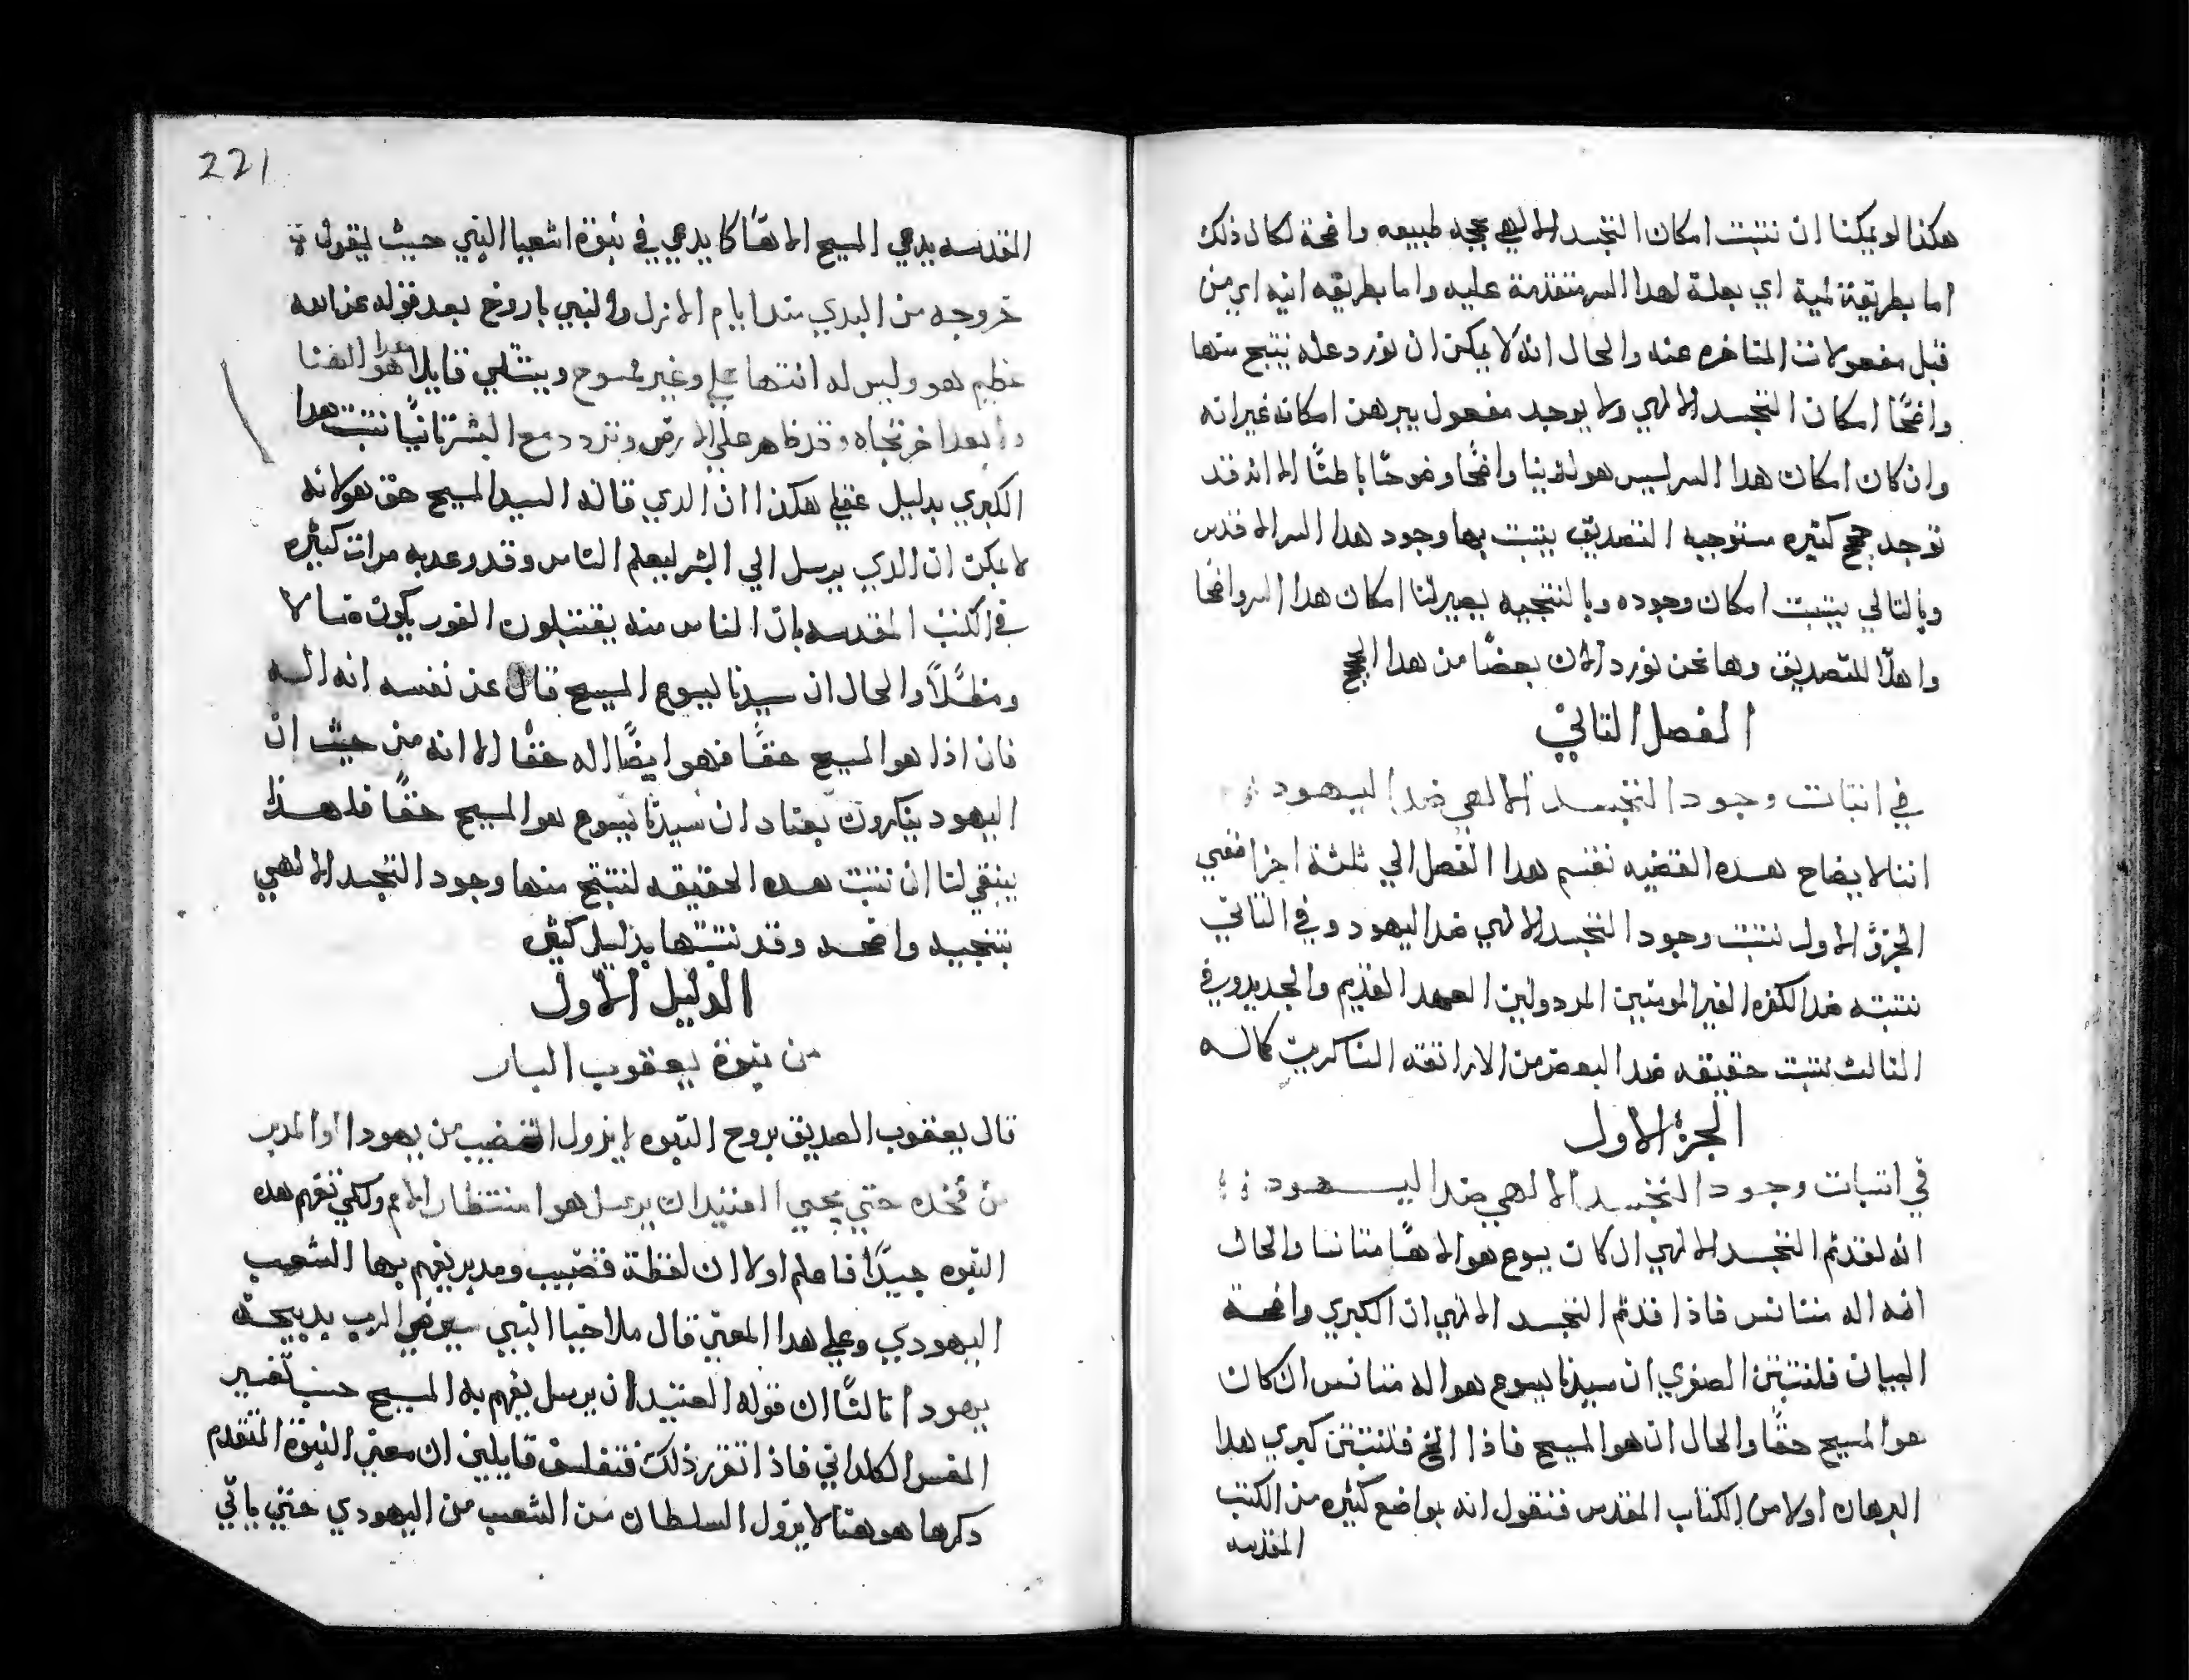 هكذا لو يمكنا ان نتبت امكان التجسد الالهي بحجه طبيعه واضحة لكان ذلك
اما بطريقة لمية اي بعلة لهدا السر متقدمة عليه واما بطريقه انيه اي من
قبل مفعولات المتاخره عنه والحال انه لا يمكن ان نورد عله ينتج منها
واضحًا امكان التجسد الالهي ولا يوجد مفعول يبرهن امكانه غير انه
وان كان امكان هدا السر ليس هو لدينا واضحًا وضوحًا باطنًا الا انه قد
توجد حجج كثيره مستوجبه التصديق يتبت بها وجود هدا السر الاقدس
وبالتالي يتبت امكان وجوده وبالنتيجه يصير لنا امكان هدا السر واضحا
واهلًا للتصديق وها نحن نورد الان بعضًا من هدا الحجج
الفصل التاني
في اتبات وجود التجسد الالهي ضد اليهود
اننا لايضاح هده القضيه نقسم هدا الفصل الي ثلثة اجزا ففي
الجزؤ الاول نتبت وجود التجسد الالهي ضد اليهود وفي التاني
نتبته ضد الكفره الغير المومنين المردولين العهد القديم والجديد وفي
التالت نتبت حقيقه ضد البعض من الاراتقه الناكرين كماله
الجزؤ الاول
في اتبات وجود التجسد الالهي ضد اليهود
انه لقد تم التجسد الالهي ان كان يسوع هو الاهًا متانسا والحال
انه اله متانس فاذا قد تم التجسد الالهي ان الكبري واضحة
البيان فلنتبتن الصغري ان سيدنا يسوع هو اله متانس ان كان
هو المسيح حقًا والحال ان هو المسيح فاذا الخ فلنتبتن كبري هدا
البرهان اولا من الكتاب المقدس فنقول انه بواضع كثيره من الكتب
المقدسه
221
المقدسه يدعي المسيح الاهًا كما يدعي في نبوة اشعيا النبي حيث يقول
خروجه من البدي مند ايام الازل والنبي باروخ بعد قوله عن الله
عظيم هو وليس له انتها علي وغير ممسوح ويتلي قايلا هدا هو الهنا
وابعدا خر تجاه وقد ظاهر علي الارض وتردد مع البشر تانيًا نتبت هدا
الكبري بدليل عقلي هكذا ان الدي قاله السيد المسيح حق هو لانه
لا يمكن ان الدي يرسل الي البشر ليعلم الناس وقد وعد به مرات كثيره
في الكتب المقدسه بان الناس منه يقتبلون النور يكون غاشا
ومظللًا والحال ان سيدنا يسوع المسيح قال عن نفسه انه اله
فان اذا هو المسيح حقًا فهو ايضًا اله حقًا الا انه من حيث ان
اليهود ينكرون بعناد ان سيدنا يسوع هو المسيح حقًا فلهذا
ينبقي لنا ان نتبت هده الحقيقه لننتج منها وجود التجسد الالهي
بنتجيه واضحه وقد نتبتها بدليل كثيره
الدليل الاول
من نبوة يعقوب البار
قال يعقوب الصديق بروح النبوه لا يزول القضيب من يهودا او المدبر
من فخده حتي يجي العتيد ان يرسل هو انتظار الامم ولكي تفهم هده
النبوه جيدًا فاعلم اولا ان لفظة قضيب ومدبر يفهم بها الشعب
اليهودي وعلي هدا المعني قال ملاخيا النبي سيرضي الرب بدبيحة
يهودا تالتًا ان قوله العتيد ان يرسل يفهم به المسيح حسب تفسير
المفسر الكلداني فاذا تقرر ذلك فنقلست قايلين ان معني النبوة المتقدم
دكرها هو هنا لا يزول السلطان من الشعب من اليهودي حتي ياتي